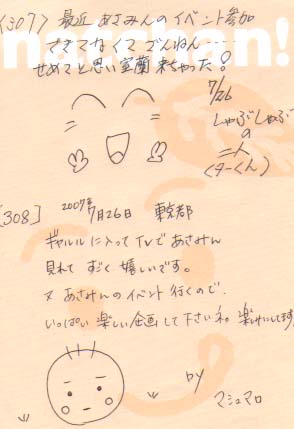 〈307〉 最近 あさみんの イベント 参加
できてなくて ざんねん…
せめてと思い 室蘭 来ちゃった!
7/26
しゃぶしゃぶ
の
二人
(ターくん)
[308] 2007年 7月26日 東京都
ギャルルに入って TVで あさみん
見れて すごく 嬉しいです。
又 あさみんの イベント 行くので、
いっぱい 楽しい企画して下さいネ。楽しみにしてます
by
マシュマロ